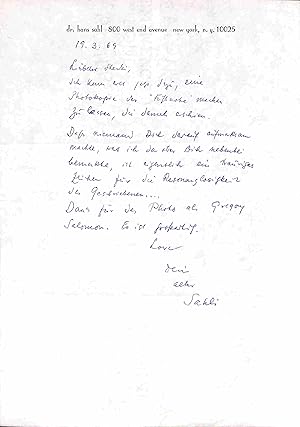 dr. hans sahl · 800 west end avenue · new york, n. y. 10025
19. 3. 69
Lieber
ich kann erst jetzt dazu, eine
Photokopie der machen
zu lassen, die damals erschien.
Dass niemand Dich darauf aufmerksam
machte, was ich da über Dich
bemerkte, ist eigentlich ein trauriges
Zeichen für die Resonanzlosigkeit
des Geschriebenen....
Dank für das Photo als Gregory
Salomon. Es ist großartig.
Love
Dein
alter
Sahli